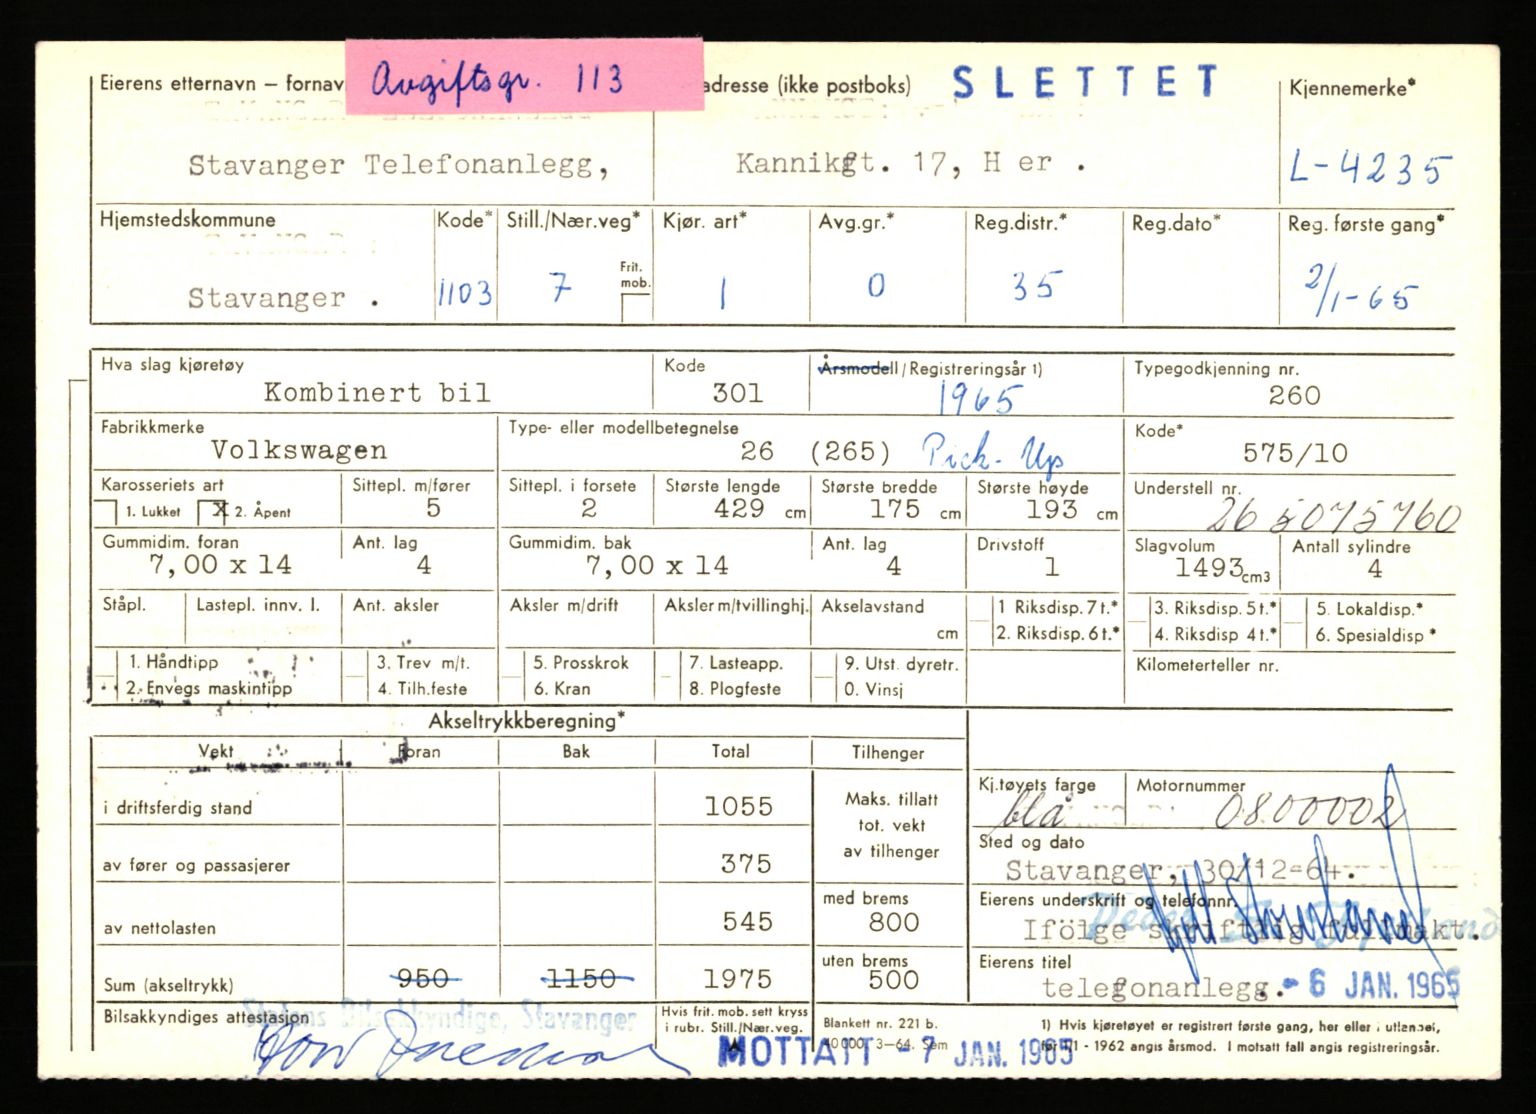 Avgiftsgr. 113
Eierens etternavn – fornav adresse (ikke postboks) SLETTET Kjennemerke*
Stavanger Telefonanlegg, Kannikgt. 17, H er . L-4235
Hjemstedskommune Kode* Still./Nær.veg* Kjør. art* Avg.gr.* Reg.distr.* Reg.dato* Reg. første gang*
Stavanger . 1103 7 Frit. mob. 1 0 35 2/1-65
Hva slag kjøretøy Kode Årsmodell/Registreringsår 1) Typegodkjenning nr.
Kombinert bil 301 1965 260
Fabrikkmerke Type- eller modellbetegnelse Kode*
Volkswagen 26 (265) Pick-Up 575/10
Karosseriets art Sittepl. m/fører Sittepl. i forsete Største lengde Største bredde Største høyde Understell nr.
1. Lukket X 2. Åpent 5 2 429 cm 175 cm 193 cm 265075760
Gummidim. foran Ant. lag Gummidim. bak Ant. lag Drivstoff Slagvolum Antall sylindre
7,00 x 14 4 7,00 x 14 4 1 1493 cm3 4
Ståpl. Lastepl. innv. l. Ant. aksler Aksler m/drift Aksler m/tvillinghj. Akselavstand cm 1 Riksdisp. 7 t.* 3. Riksdisp. 5 t.* 5. Lokaldisp.*
2. Riksdisp. 6 t.* 4. Riksdisp 4 t.* 6. Spesialdisp*
1. Håndtipp 3. Trev m/t. 5. Prosskrok 7. Lasteapp. 9. Utst. dyretr. Kilometerteller nr.
2. Envegs maskintipp 4. Tilh.feste 6. Kran 8. Plogfeste 0. Vinsj
Akseltrykkberegning*
Vekt Foran Bak Total Tilhenger
i driftsferdig stand 1055 Maks. tillatt tot. vekt av tilhenger
Kj.tøyets farge Motornummer
blå 0800002
av fører og passasjerer 375
Sted og dato
Stavanger, 30/12-64.
av nettolasten 545 med brems 800
Eierens underskrift og telefonnr.
Ifölge skriftlig fullmakt.
Sum (akseltrykk) 950 1150 1975 uten brems 500
Eierens titel
telegonanlegg. - 6 JAN. 1965
Bilsakkyndiges attestasjon Statens Bilsakkyndige, Stavanger
Hvis frit. mob. sett kryss i rubr. Still./Nær.veg.
Blankett nr. 221 b.
40 000. 3–64. Sem
1) Hvis kjøretøyet er registrert første gang, her eller i utlandet, før 1/1 - 1962 angis årsmod. I motsatt fall angis registreringsår.
MOTTATT - 7 JAN. 1965